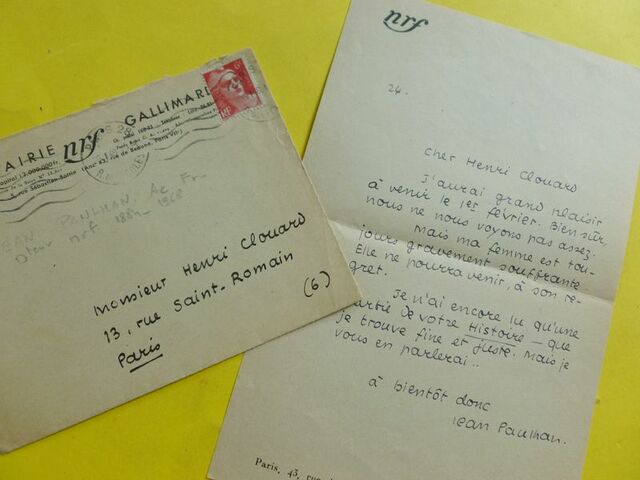 nrf
GALLIMARD
AIRIE
RF
JEAN PAULHAN Ac. Fr.
nrf 1884-1968
Monsieur Henri Clouard
13, rue Saint-Romain
(6)
Paris
nrf
24.
cher Henri Clouard
J'aurai grand plaisir
à venir le 1er février. Bien sûr,
nous ne nous voyons pas assez.
Mais ma femme est tou-
jours gravement souffrante
Elle ne pourra venir, à son re-
gret.
Je n'ai encore lu qu'une
partie de votre Histoire — que
je trouve fine et juste. Mais je
vous en parlerai..
à bientôt donc
Jean Paulhan.
Paris, 43, rue